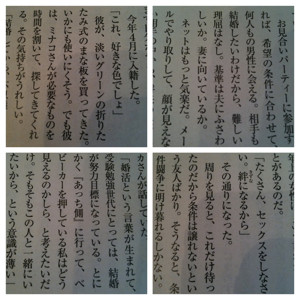 お見合いパーティーに参加す
れば、希望の条件に合わせて、
何人もの男性に会える。相手も
結婚したいわけだから、難しい
理屈はなし。基準は夫にふさわ
しいか。妻に向いているか。
ネットはもっと気楽だ。メー
ルでやり取りして、顔が見えな
今年4月に入籍した。
「これ、好きな色でしょ」
彼が、淡いグリーンの折りた
たみ式のまな板を買ってきた。
いかにも使いにくそう。でも彼
は、ミナコさんが必要なものを
時間を割いて、探してきてくれ
る。その気持ちがうれしい。
とがあるのだ。
「たくさん、セックスをしなさ
い。絆になるから」
その通りになった。
周りを見ると、これだけ待っ
たのだから条件は譲れないとい
う友人ばかり。そうなると、条
件闘争に明け暮れるしかない。
カさんが話していた。
「婚活という言葉が生まれて、
受験勉強世代にとっては、結婚
が努力目標になっている。とに
かく『あっち側』に行って、ベ
ビーカーを押している私はどう
見えるのかしら、と考えないだ
け。そもそもこの人と一緒にい
たいから、という意識が薄い」